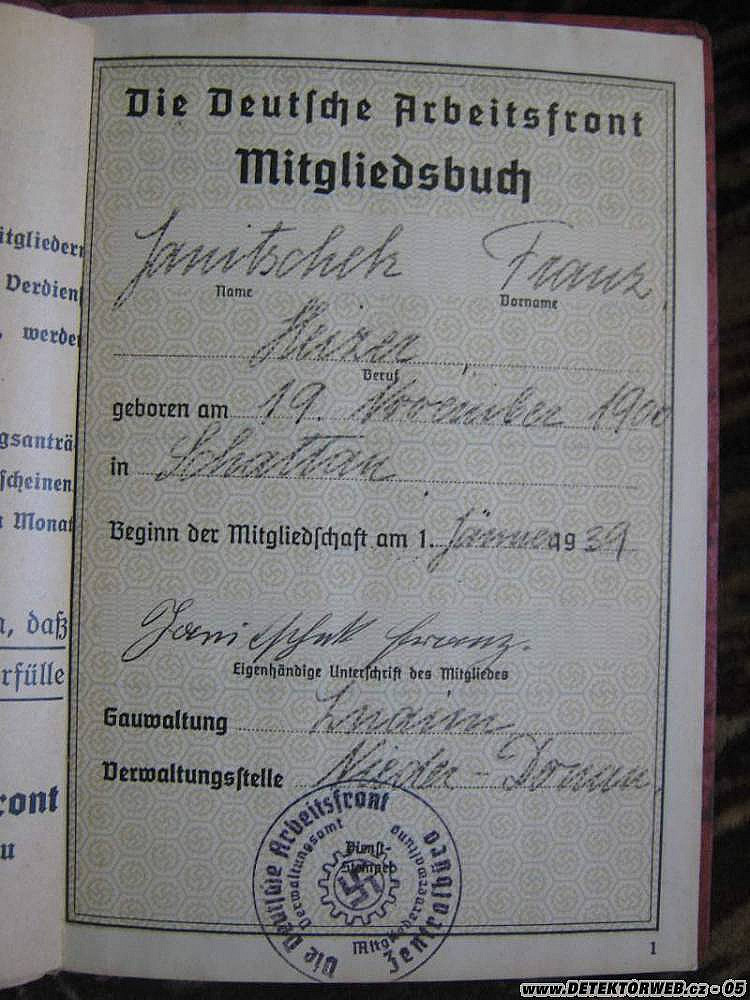 itgliedern
Verdiens
, werde
gsanträ
scheinen
Monat
, daß
rfülle
ront
u
Die Deutsche Arbeitsfront
Mitgliedsbuch
Janitschek Franz
Name Vorname
Heizer
Beruf
geboren am 19. November 1900
in Schattau
Beginn der Mitgliedschaft am 1. Jänner 1939
Janitschek Franz.
Eigenhändige Unterschrift des Mitgliedes
Gauwaltung Znaim
Verwaltungsstelle Nieder-Donau
Die Deutsche Arbeitsfront
Verwaltungsamt
Dienst-
Stempel
Mitgliederverwaltung
Zentralbüro
1
www.DETEKTORWEB.cz - 05